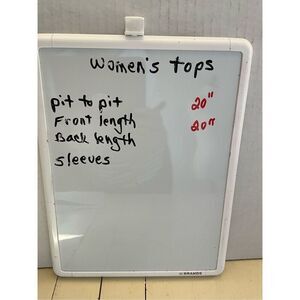 women's tops
pit to pit 20"
Front length 20"
Back length
sleeves
BRANDS